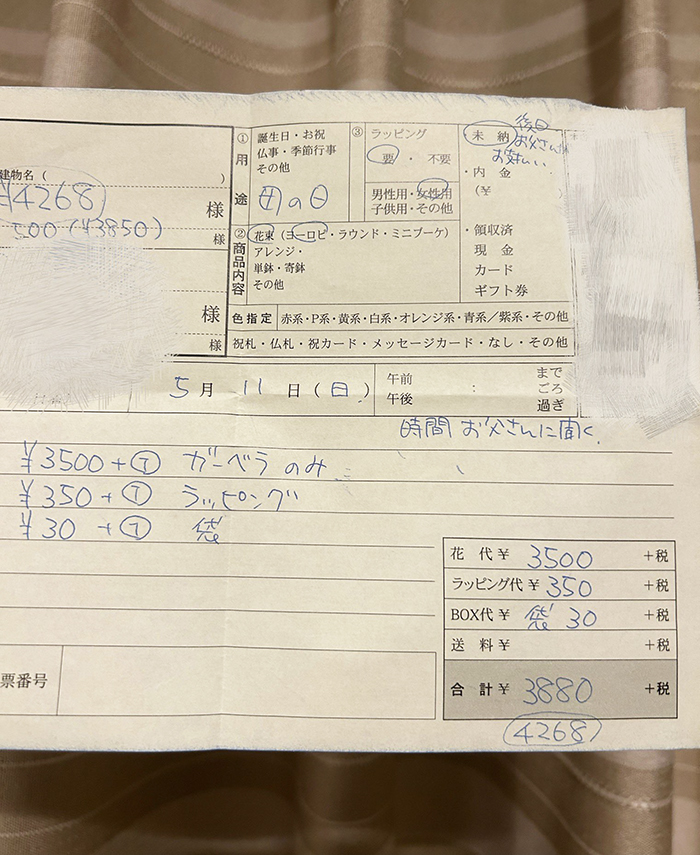 建物名（　　）
¥4268
様
500(¥3850)
様
様
様
① 用途
誕生日・お祝
仏事・季節行事
その他
母の日
② 商品内容
花束（ヨーロピ・ラウンド・ミニブーケ）
アレンジ・
単鉢・寄鉢
その他
③ ラッピング
要・不要
男性用・女性用
子供用・その他
後日
お父さん
お支払い
未納
・内金
（¥
）
・領収済
現金
カード
ギフト券
色指定 赤系・P系・黄系・白系・オレンジ系・青系／紫系・その他
祝札・仏札・祝カード・メッセージカード・なし・その他
5月 11日（日）
午前
午後
:
まで
ごろ
過ぎ
時間 お父さんに聞く
¥3500+㋜ ガーベラのみ
¥350+㋜ ラッピング
¥30+㋜ 袋
花代¥ 3500 +税
ラッピング代¥ 350 +税
BOX代¥ 袋 30 +税
送料¥ +税
合計¥ 3880 +税
4268
票番号